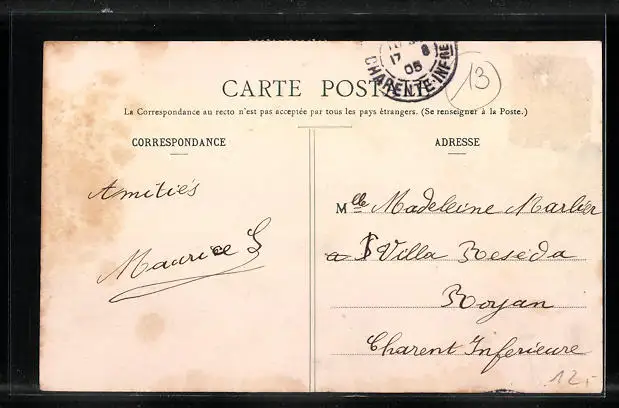 17 8
05
CHARENTE-INFRE
13
CARTE POST
La Correspondance au recto n'est pas acceptée par tous les pays étrangers. (Se renseigner à la Poste.)
CORRESPONDANCE
Amitiés
Maurice L
ADRESSE
Mlle Madeleine Marlier
a Villa Reseda
Royan
Charent Inferieure
12.-